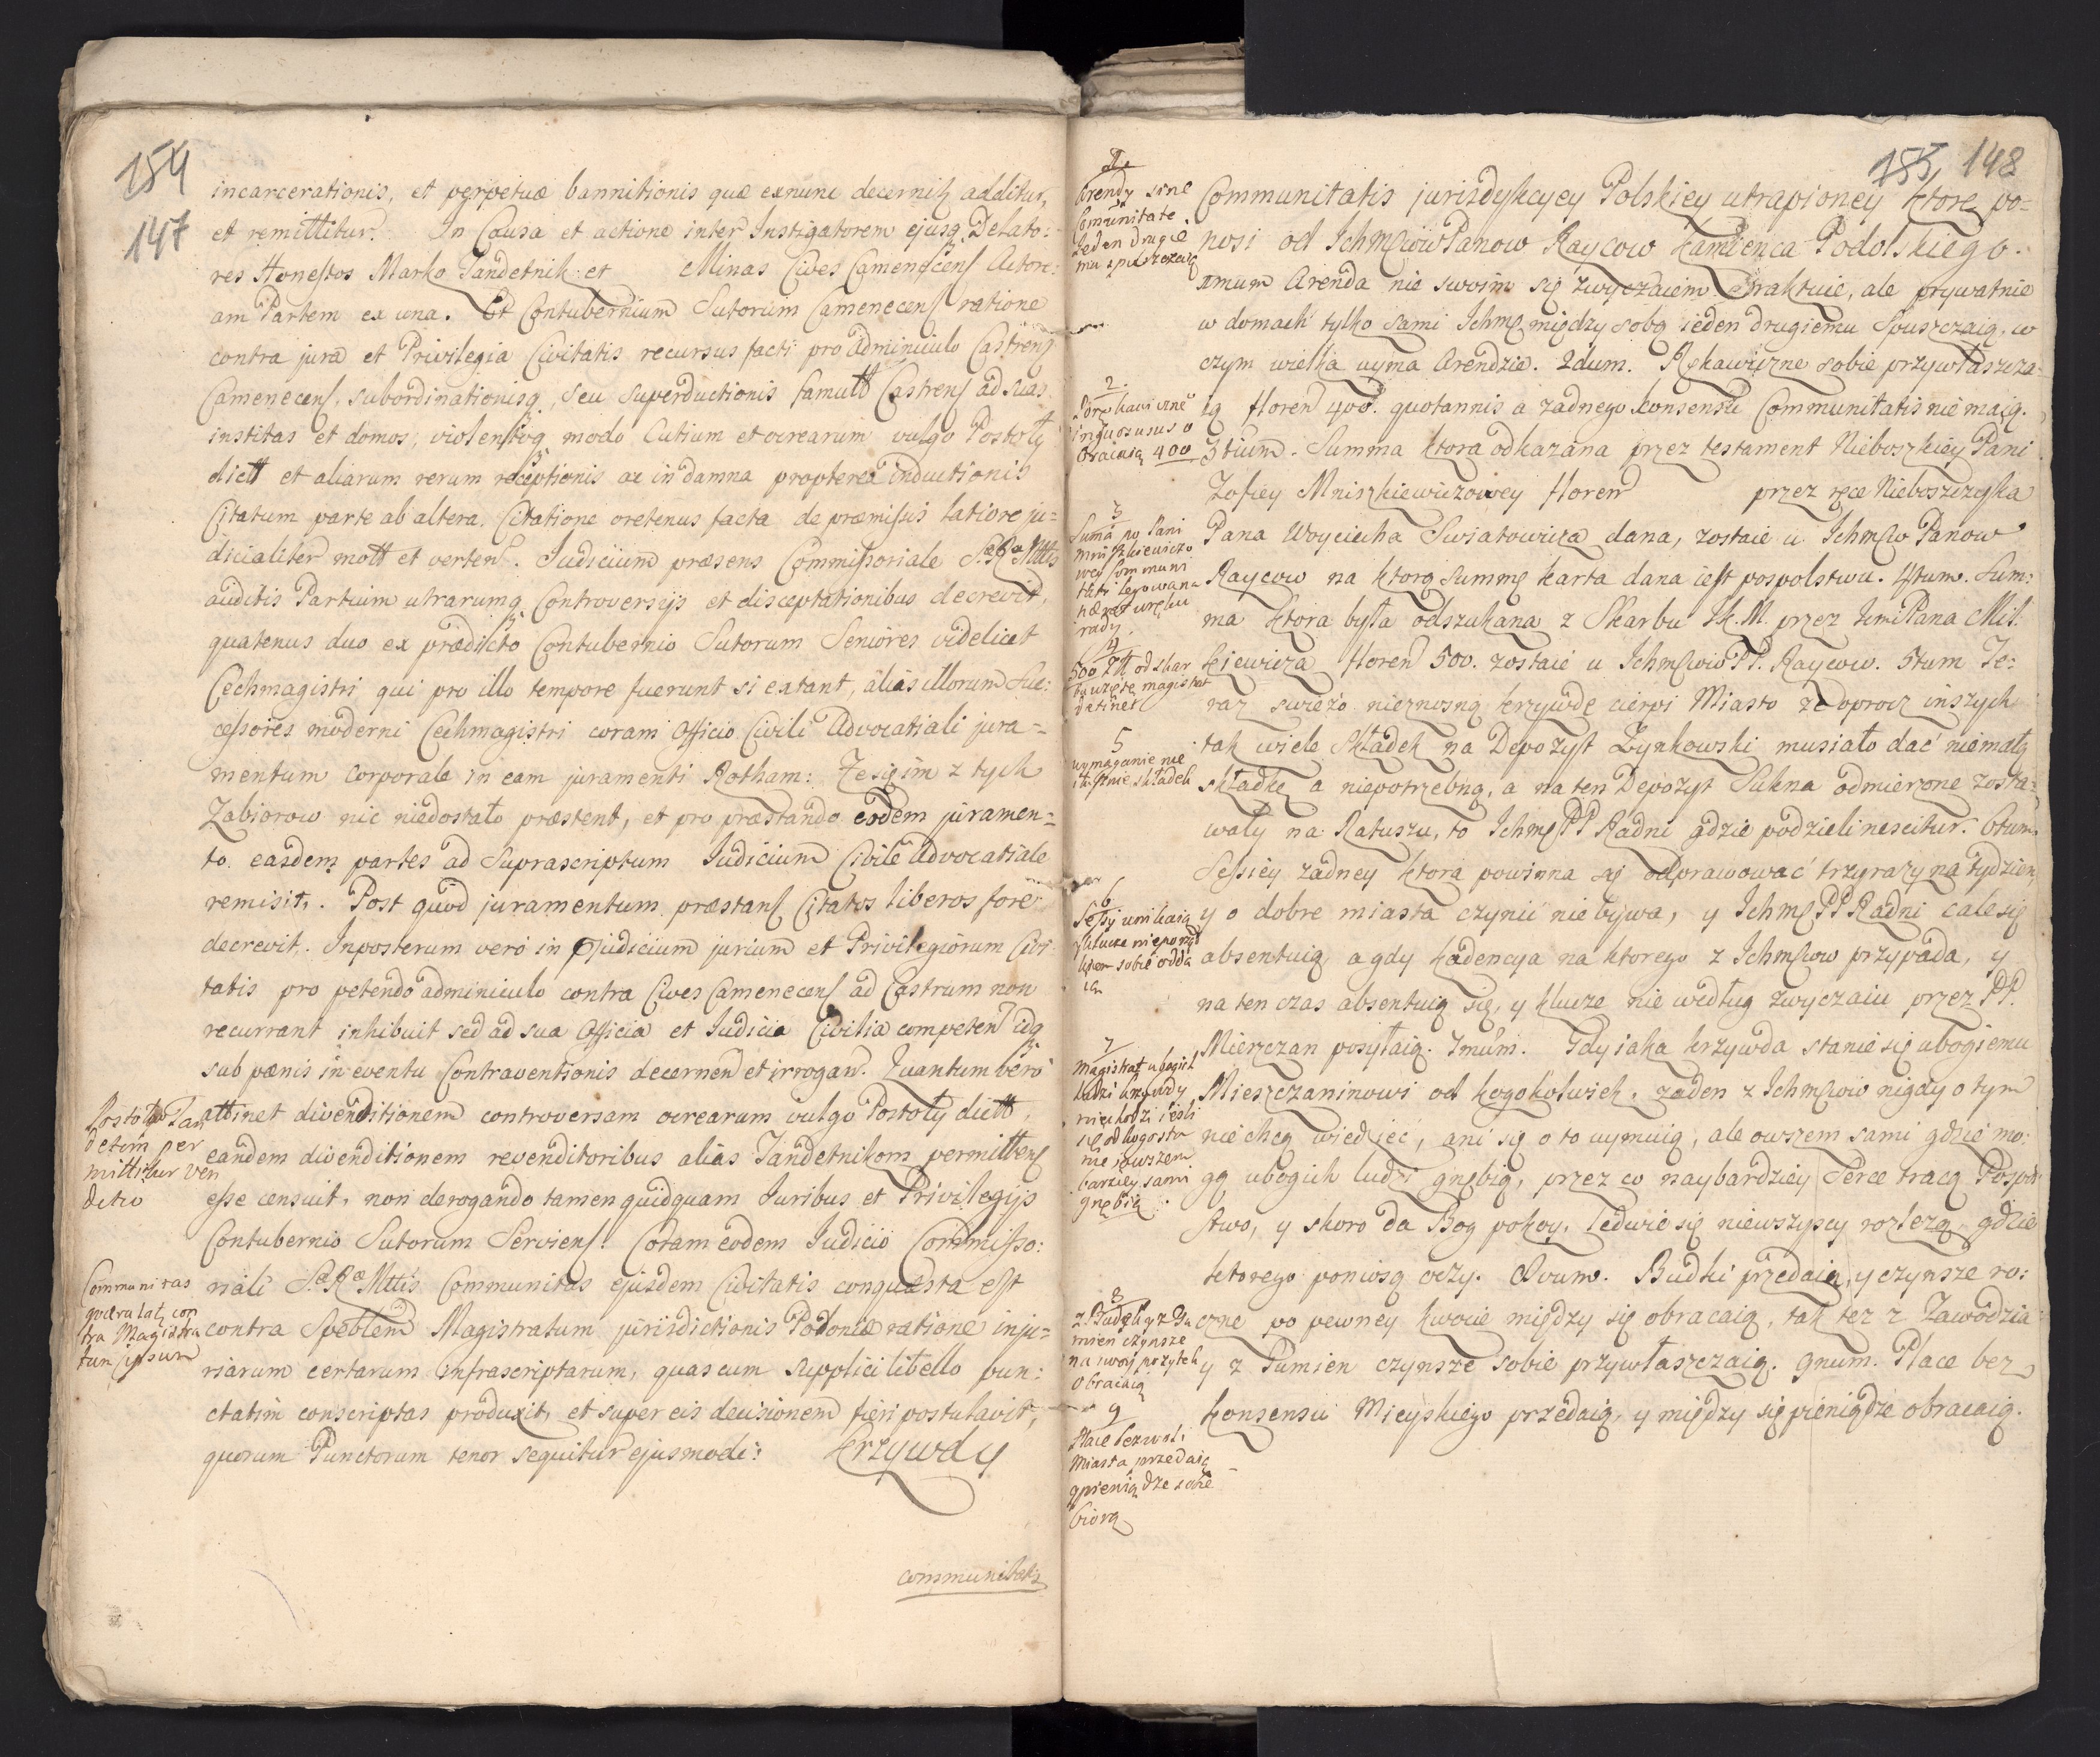 154
147
incarcerationis, et perpetuæ bannitionis quæ exnunc decernitq additur,
et remittitur. In Causa et actione inter Instigatorem ejusq Delato:
res Honestos Marko Tandetnik et Minas Cives Camenecens Actore:
am Partem ex una. Et Contubernium Sutorum Camenecens ratione
contra jura et Privilegia Civitatis recursus facti pro Adminiculo Castrens
Camenecens, subordinationisq, seu superductionis famult Castrens ad suas
institas et domos, violentoq modo Cutium et ocrearum vulgo Postoły
dictt et aliarum rerum receptionis ac in damna propterea inductionis
Citatum parte ab altera. Citatione oretenus facta de præmissis latiore ju=
dicialiter mott et verten. Judicium præsens Commissoriale S. R. Mttis
auditis Partium utrarumq Controversijs et disceptationibus decrevit,
quatenus duo ex prædicto Contubernio Sutorum Seniores videlicet
Cechmagistri qui pro illo tempore fuerunt si extant, alias illorum Suc:
cessores moderni Cechmagistri coram Officio Civili Advocatiali jura=
mentum corporale in eam juramenti Rotham: Ze się im z tych
Zabiorow nic niedostało præstent, et pro præstando eodem juramen=
to easdem partes ad Suprascriptum Judicium Civile Advocatiale
remisit. Post quod juramentum præstans Citatos liberos fore
decrevit. Inposterum vero in Pjudicium jurium et Privilegiorum Civi
tatis pro petendo adminiculo contra Cives Camenecens ad Castrum non
recurrant inhibuit sed ad sua Officia et Judicia Civilia competen idq
sub pænis in eventu Contraventionis decernen et irrogan. Quantum vero
attinet divenditionem controversam ocrearum vulgo Postoły dictt,
eandem divenditionem revenditoribus alias Tandetnikom permittens
esse censuit, non derogando tamen quidquam Juribus et Privilegijs
Contubernio Sutorum Serviens. Coram eodem Judicio Commisso:
riali S. R. Mttis Communitas ejusdem Civitatis conquæsta est
contra Spéblem Magistratum jurisdictionis Polonicæ ratione inju=
riarum certarum infrascriptarum, quas cum supplici libello pun:
ctatim conscriptas produxit, et super eis decisionem fieri postulavit,
quorum Punctorum tenor sequitur ejusmodi: Krzywdy
communitatis
Postoły Tan
detim per
mittitur ven
ditio
Communitas
quærulat con
tra Magistra
tum ipsum
155 148
Communitatis jurisdykcyey Polskiey utrapioney ktore po=
nosi od Ichmciow Panow Raycow Kamienca Podolskiego.
1mum Arenda nie swoim się zwyczaiem Traktuie, ale prywatnie
w domach tylko sami Ichmę między sobą ieden drugiemu Spuszczaią, w
czym wielka uyma Arendzie. 2dum. Rękawiczne sobie przywłaszcza=
ią floren 400. quotannis a zadnego konsensu Communitatis nie maią.
3tium. Summa ktora odkazana przez testament Nieboszkiey Pani
Zofiey Mniszkiewiczowey floren przez ręce Nieboszczyka
Pana Woyciecha Swiatowicza dana, zostaie u Ichmciow Panow
Raycow na ktorą Summę karta dana iest pospolstwu. 4tum. Sum:
ma ktora była odszukana z Skarbu Ik.M. przez Imci Pana Mis:
kiewicza floren 500. zostaie u Ichmciow PP. Raycow. 5tum Te:
raz swiezo nieznosną krzywdę cierpi Miasto ze oprocz inszych
tak wiele Składek na Depozyt Zynkowski musiało dać niemałą
składkę a niepotrzebną, a na ten Depozyt Sukna odmierzone zosta=
wały na Ratuszu, to Ichmę PP Radni gdzie podzieli nescitur. 6tum
Sessiey zadney ktora powinna się odprawować trzyrazy na tydzien,
y o dobre miasta czynić nie bywa, y Ichmę PP Radni cale się
absentuią, a gdy kadencya na ktorego z Ichmciow przypada, y
na ten czas absentuią się, y klucze nie według zwyczaiu przez PP.
Mieszczan posyłaią. 7mum. Gdy iaka krzywda stanie się ubogiemu
Mieszczaninowi od kogokolwiek, zaden z Ichmciow nigdy o tym
nie chcą wiedzieć, ani się o to uymuią, ale owszem sami gdzie mo:
gą ubogich ludzi gnębią, przez co naybardziey Serce tracą Pospol
stwo, y skoro da Bog pokoy, ledwie się niewszyscy rozlezą, gdzie
ktorego poniosą oczy. 8vum. Budki przedaią, y czynsze ro:
czne po pewney kwocie między się obracaią, tak tez z Zawodzia
y z Pumien czynsze sobie przywłaszczaią. 9num. Place bez
konsensu Mieyskiego przedaią, y między się pieniądze obracaią.
1
Arendy sine
Comunitate
Ieden drugie
mu spuszczaią
2
Porękawiczne
in suos usus o
bracaią 400
3
Suma po Pani
Mniszkiewiczo
wey Communi
tati legowana
haeret w ręku
rady
4
500 zł od skar
bu wzięte magistrat
detinet
5
wymaganie nie
słusznie składek
6
Sessij unikaią
y klucze nie porząd
kiem sobie odda
ią
7
Magistrat ubogich
ludzi krzywdy
nieuchodzi iesli
się od kogo sta
nie, owszem
barziey sami
gnębią
8
z Budek y z Pu
mien czynsze
na swoy pozytek
obracaią
9
Place bez woli
Miasta przedaią
y pieniądze sobie
biorą